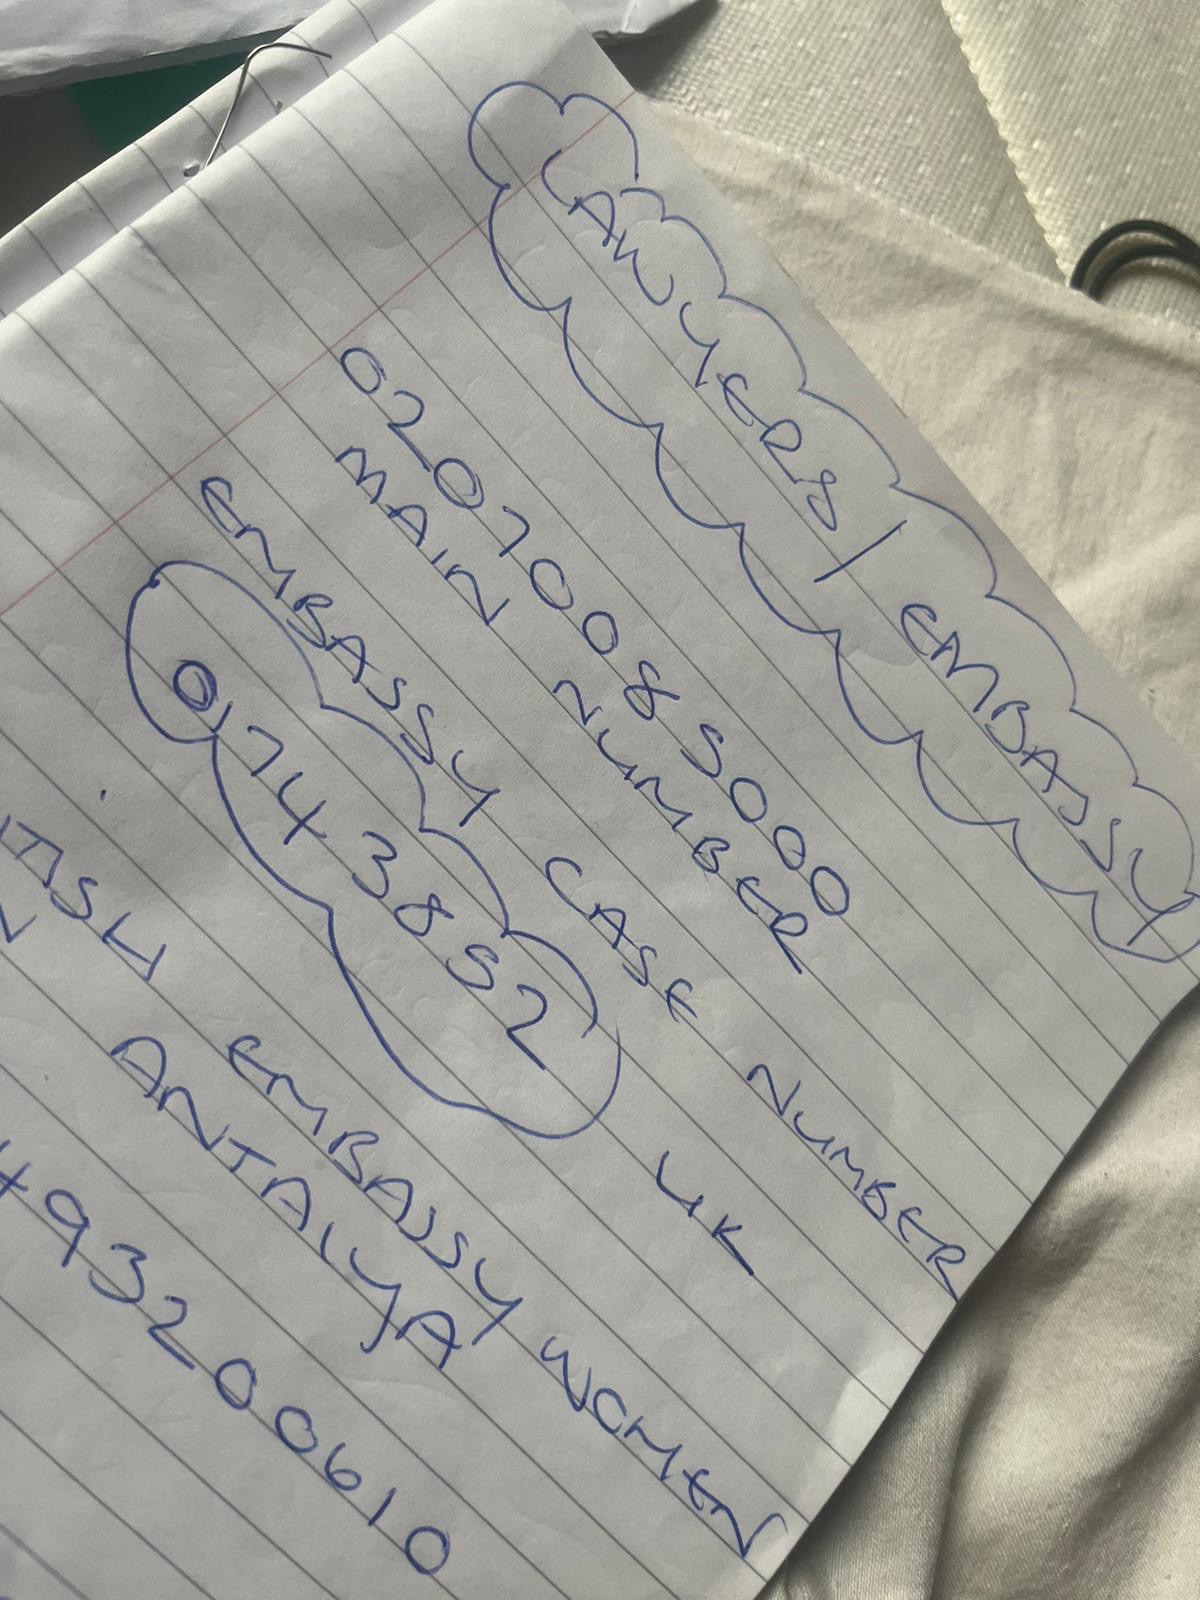 LAWYERS / EMBASSY
02070085000
MAIN NUMBER
EMBASSY CASE NUMBER
0174 3852 UK
EMBASSY WOMEN
ANTALYA
9320 0610